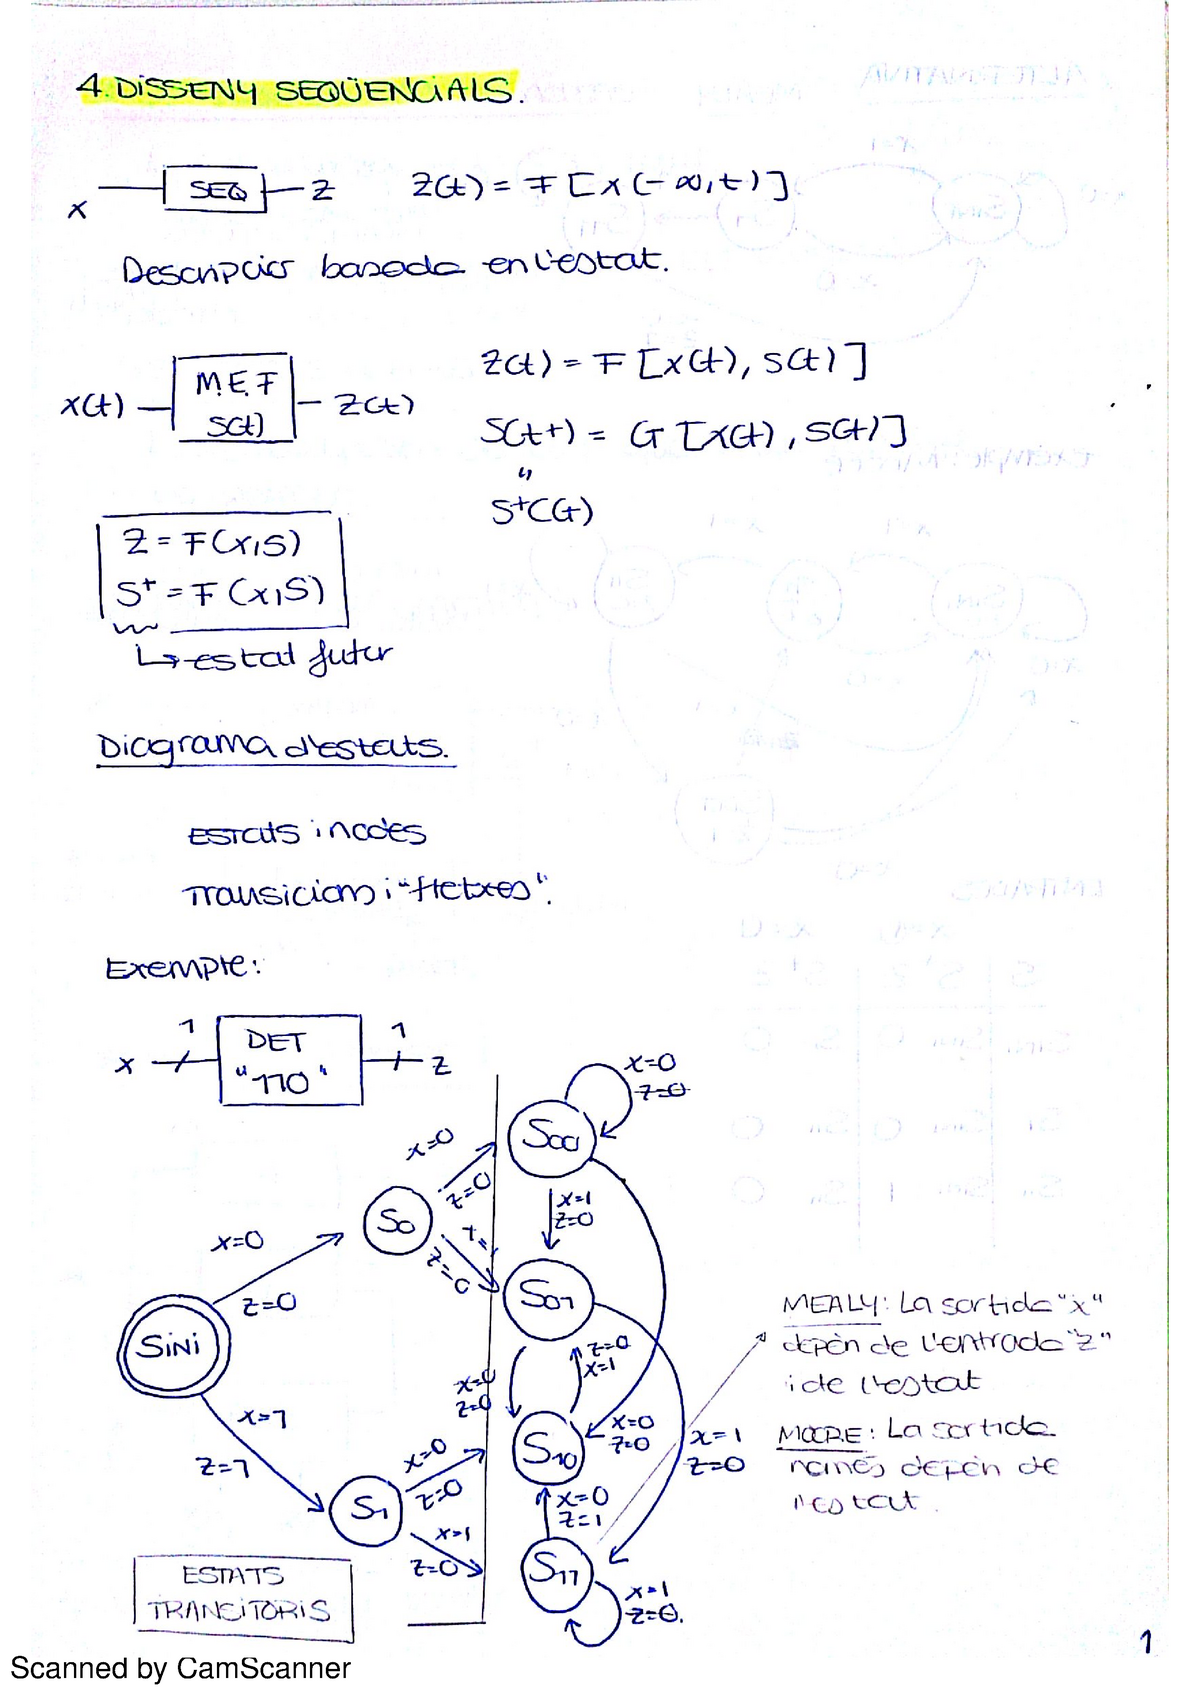 4. DISSENY SEQÜENCIALS.
x SEQ z z(t) = F [x(-∞,t)]
Descripció basada en l'estat.
x(t) M.E.F s(t) z(t)
z(t) = F [x(t), s(t)]
s(t+) = G [x(t), s(t)]
"
s+(t)
z = F(x,s)
s+ = F(x,s)
↳ estat futur
Diagrama d'estats.
Estats i nodes
Transicions i "fletxes".
Exemple:
x 1 DET "110" 1 z
x=0
z=0
S00
x=0
z=0
x=1
z=0
S0
x=1
z=0
x=0
z=0
S01
Sini
z=0
x=1
x=0
z=0
x=1
z=1
x=0
z=0
S10
x=0
z=0
x=1
z=0
S1
x=0
z=1
x=1
z=0
S11
x=1
z=0.
ESTATS
TRANSITORIS
MEALY: La sortida "x"
depèn de l'entrada "z"
i de l'estat
MOORE: La sortida
només depèn de
l'estat.
1
Scanned by CamScanner